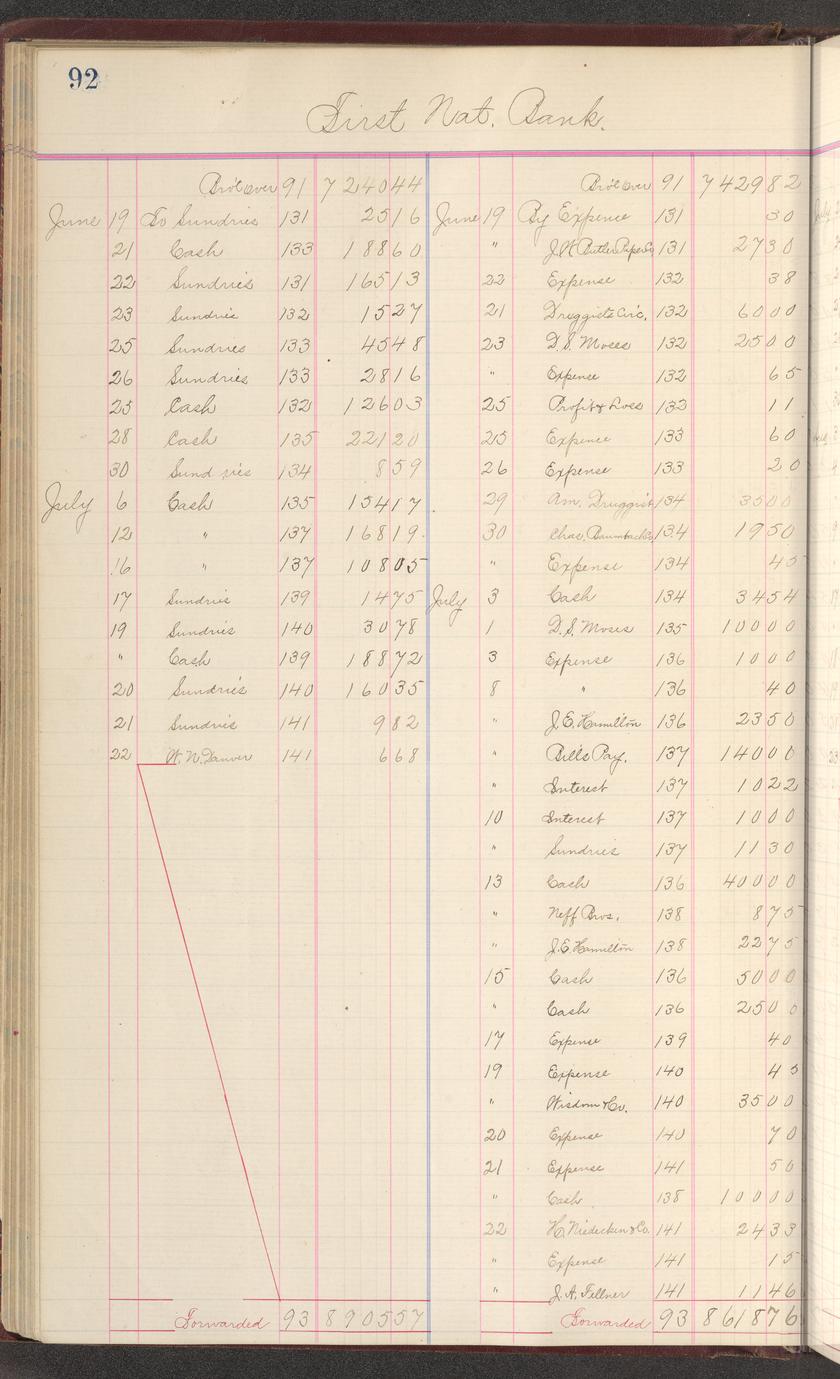 92
First Nat. Bank.
Bro't over 91 7 240 44
June 19 To Sundries 131 25 16
21 Cash 133 188 60
22 Sundries 131 165 13
23 Sundries 132 15 27
25 Sundries 133 45 48
26 Sundries 133 28 16
25 Cash 132 126 03
28 Cash 135 221 20
30 Sundries 134 8 59
July 6 Cash 135 154 17
12 " 137 168 19
16 " 137 108 05
17 Sundries 139 14 75
19 Sundries 140 30 78
" Cash 139 188 72
20 Sundries 140 160 35
21 Sundries 141 9 82
22 W. N. 141 6 68
Forwarded 93 8 905 57
Bro't over 91 7 429 82
June 19 By Expense 131 30
" J. W. Butler Paper Co 131 27 30
22 Expense 132 38
21 Druggists Circ. 132 60 00
23 D. S. Moses 132 25 00
" Expense 132 65
25 Profit & Loss 132 11
25 Expence 133 60
26 Expense 133 20
29 Am. Druggist 134 35 00
30 Chas. Baumbach Co 134 19 50
" Expense 134 45
July 3 Cash 134 34 54
1 D. S. Moses 135 100 00
3 Expense 136 10 00
8 " 136 40
" J. E. Hamilton 136 23 50
" Bills Pay. 137 140 00
" Interest 137 10 22
10 Interest 137 10 00
" Sundries 137 11 30
13 Cash 136 400 00
" Neff Bros. 138 8 75
" J. E. Hamilton 138 22 75
15 Cash 136 50 00
" Cash 136 25 00
17 Expense 139 40
19 Expense 140 45
" Wisdom & Co. 140 35 00
20 Expense 140 70
21 Expense 141 50
" Cash 138 100 00
22 H. Niedecken & Co. 141 24 33
" Expense 141 15
" J. A. Fellner 141 11 46
Forwarded 93 8 618 76